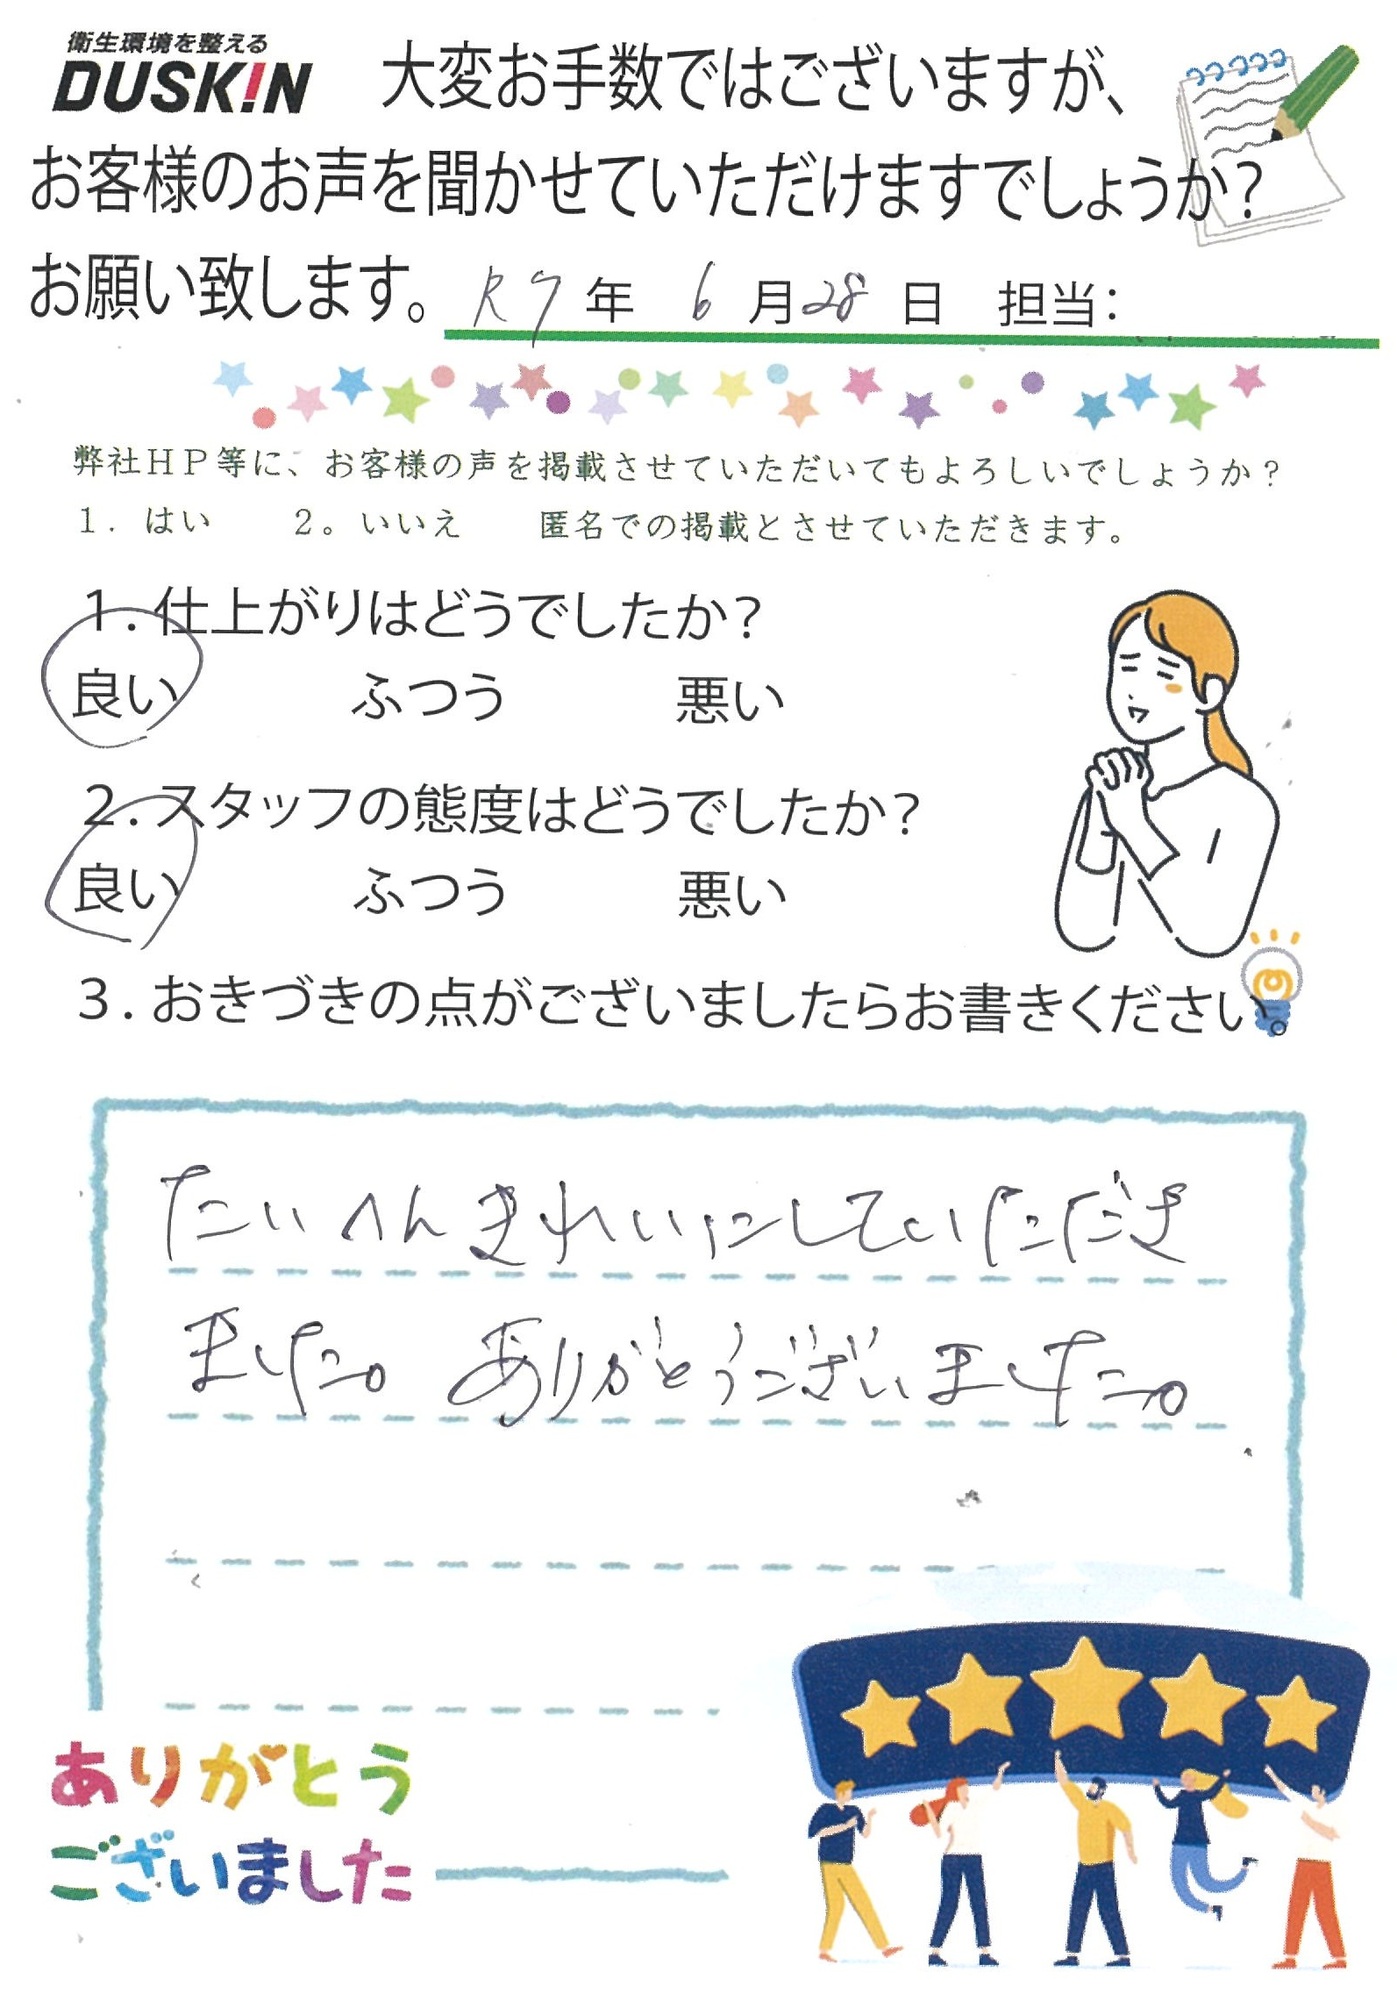 衛生環境を整える
DUSKIN
大変お手数ではございますが、
お客様のお声を聞かせていただけますでしょうか？
お願い致します。 R7年 6月28日 担当：
弊社ＨＰ等に、お客様の声を掲載させていただいてもよろしいでしょうか？
１．はい ２。いいえ 匿名での掲載とさせていただきます。
１．仕上がりはどうでしたか？
良い ふつう 悪い
２．スタッフの態度はどうでしたか？
良い ふつう 悪い
３．おきづきの点がございましたらお書きください。
たいへんきれいにしていただき
ました。ありがとうございました。
ありがとう
ございました